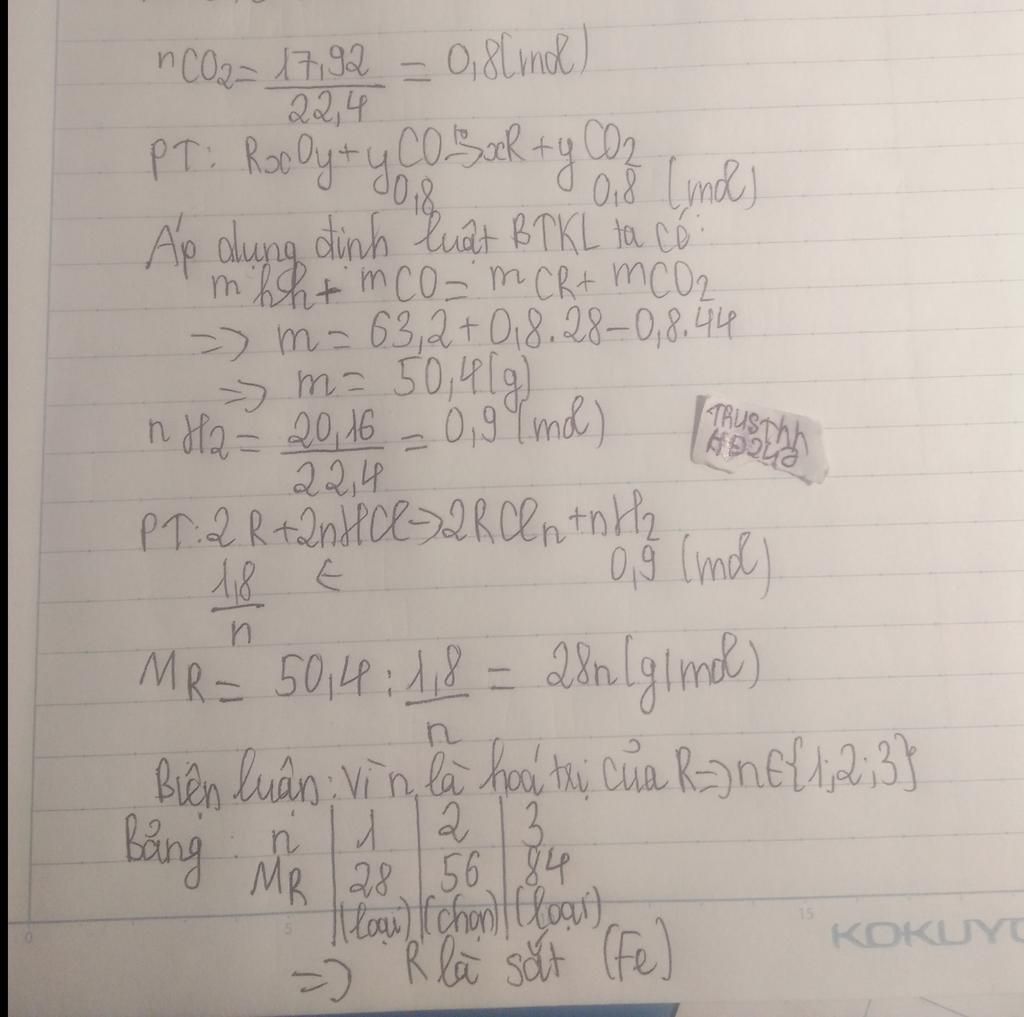 nCO2 = 17,92/22,4 = 0,8 (mol)
PT: RxOy + yCO t°→ xR + yCO2
0,8 0,8 (mol)
Áp dụng định luật BTKL ta có:
m hh + mCO = mCR + mCO2
=> m = 63,2 + 0,8.28 - 0,8.44
=> m = 50,4 (g)
nH2 = 20,16/22,4 = 0,9 (mol)
TRUSThh
PT: 2R + 2nHCl → 2RCln + nH2
1,8/n ← 0,9 (mol)
MR = 50,4 : 1,8/n = 28n (g/mol)
Biện luận: Vì n là hoá trị của R => n∈{1;2;3}
Bảng: n | 1 | 2 | 3
MR | 28 | 56 | 84
(loại) | (chọn) | (loại)
0 5 15 KOKUYO
=> R là sắt (Fe)